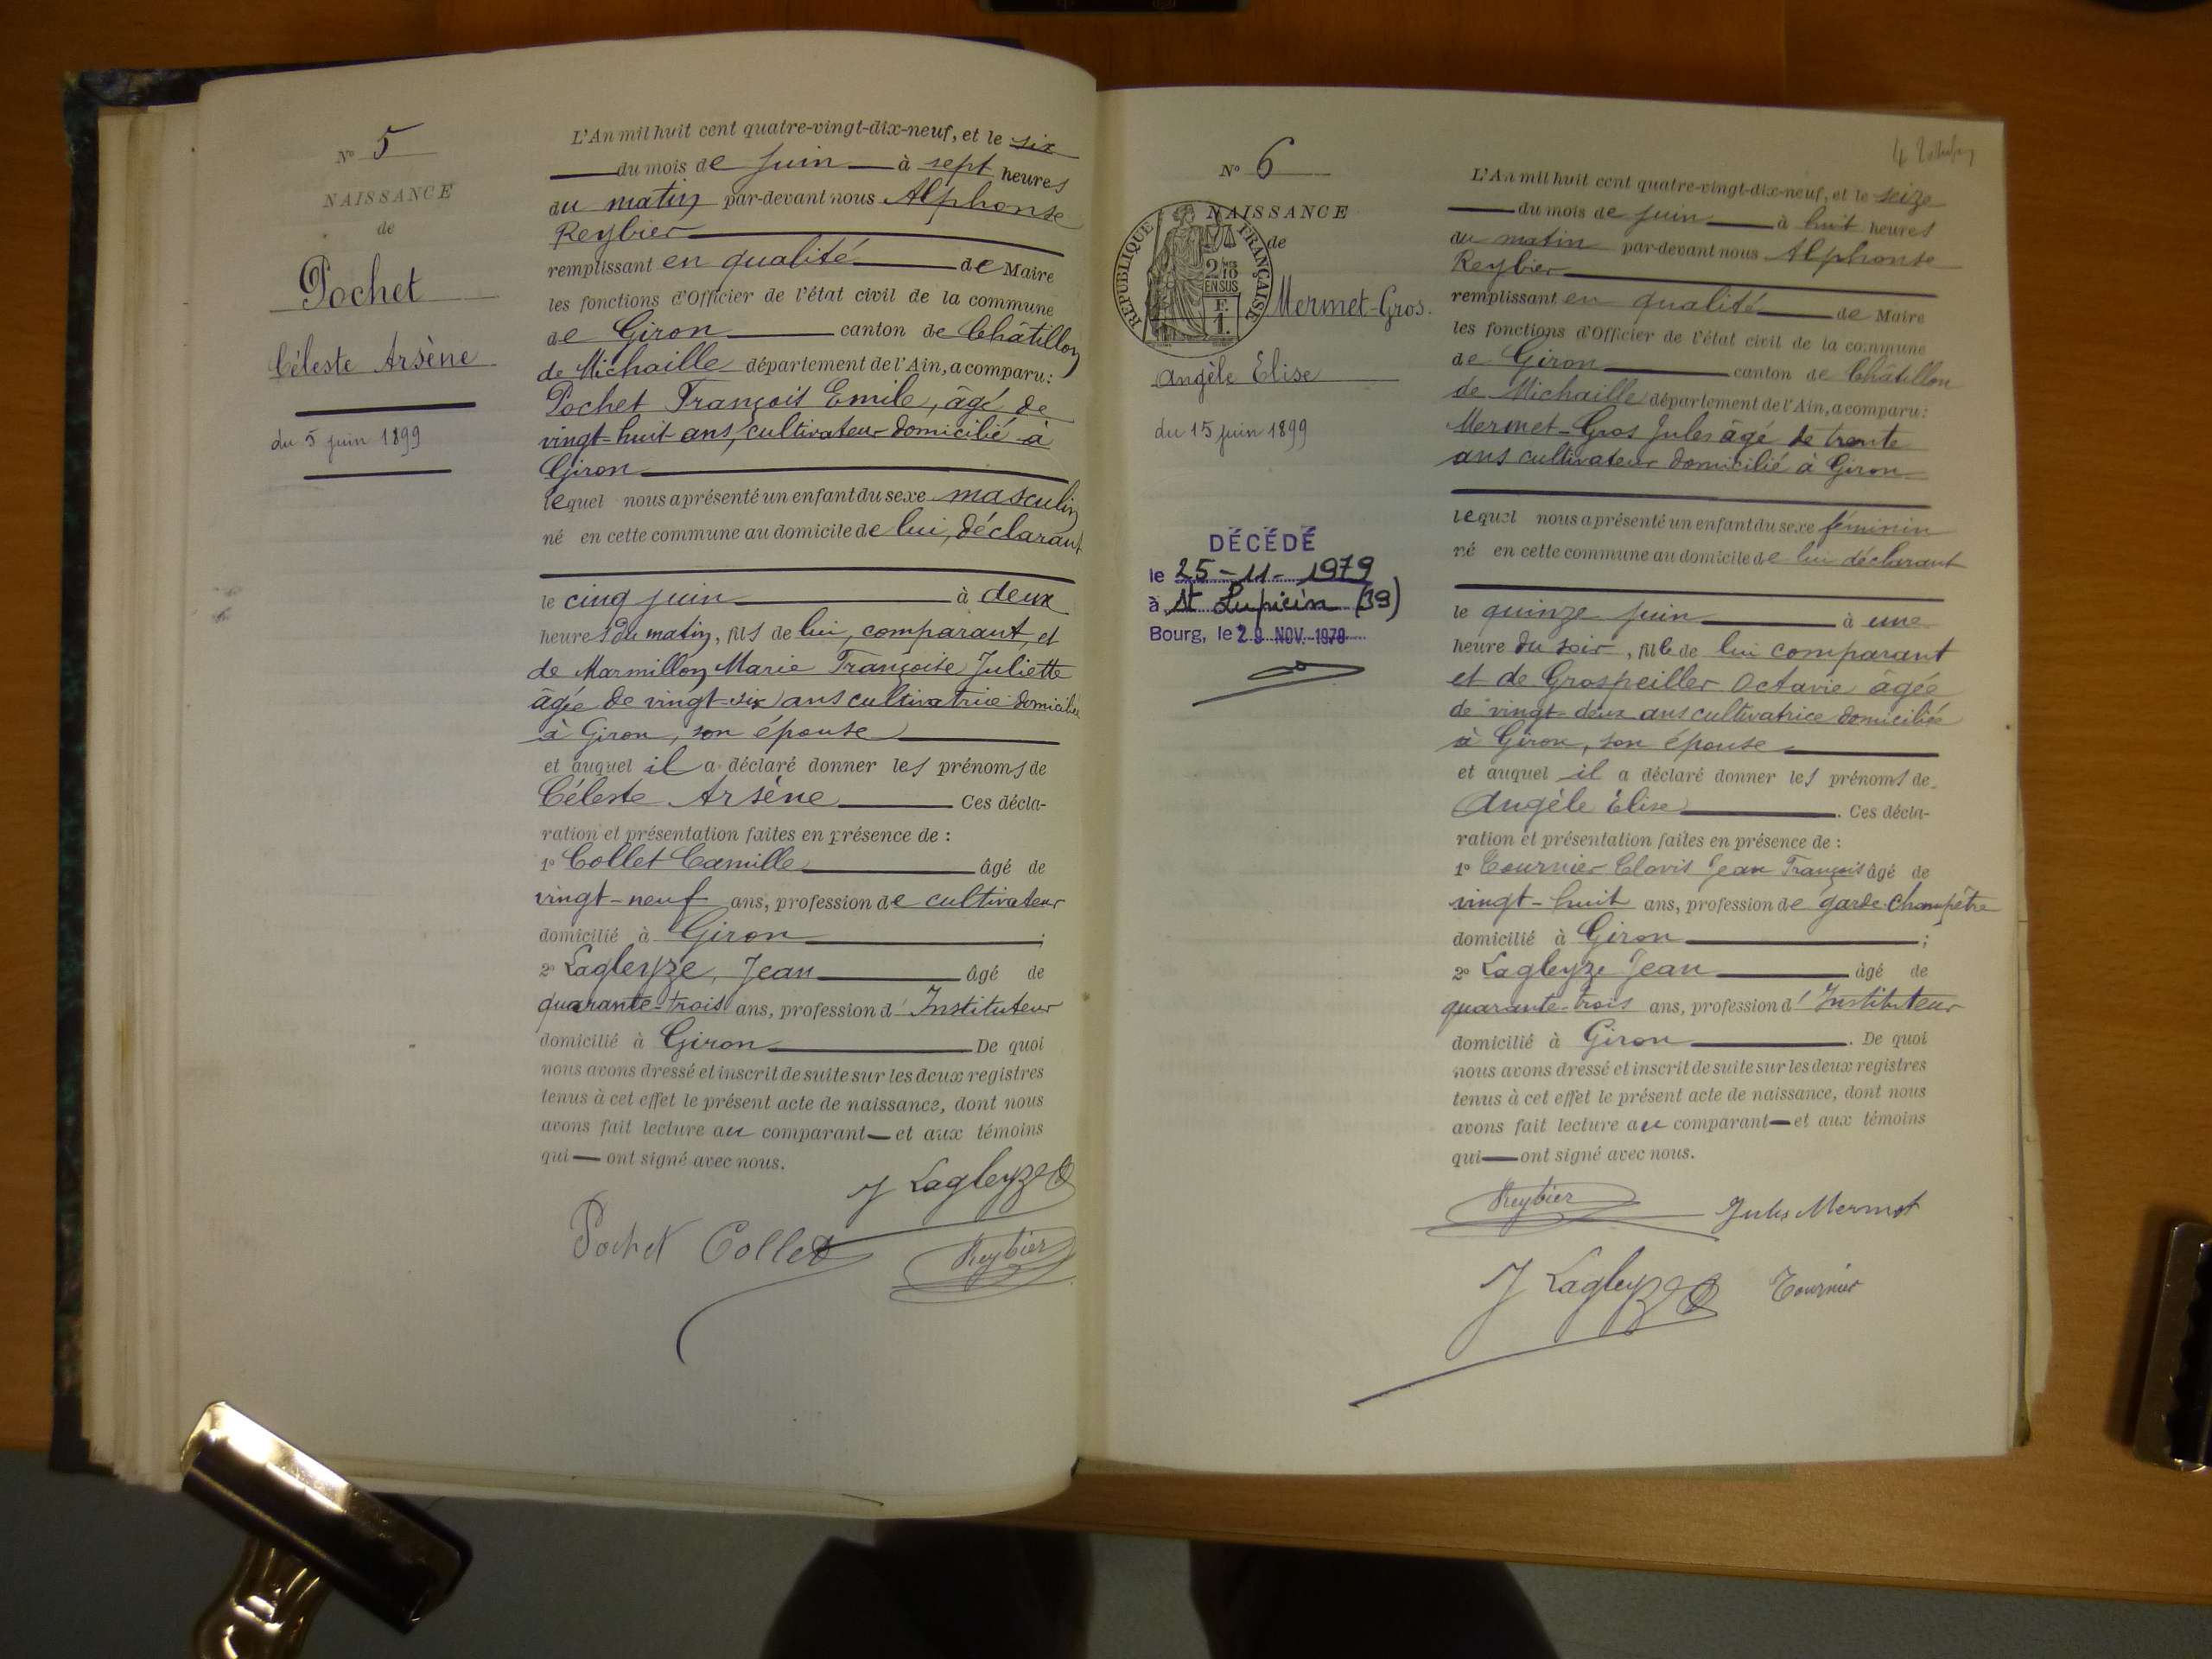 N° 5
NAISSANCE
de
Pochet
Céleste Arsène
du 5 juin 1899
L'An mil huit cent quatre-vingt-dix-neuf, et le six
du mois de juin à sept heures
du matin par-devant nous Alphonse
Reybier
remplissant en qualité de Maire
les fonctions d'Officier de l'état civil de la commune
de Giron canton de Châtillon
de Michaille département de l'Ain, a comparu :
Pochet François Emile, âgé de
vingt-huit ans, cultivateur domicilié à
Giron
lequel nous a présenté un enfant du sexe masculin
né en cette commune au domicile de lui, déclarant
le cinq juin à deux
heures du matin, fils de lui, comparant, et
de Marmillon Marie Françoise Juliette
âgée de vingt-six ans cultivatrice domiciliée
à Giron, son épouse
et auquel il a déclaré donner les prénoms de
Céleste Arsène Ces décla-
ration et présentation faites en présence de :
1° Collet Camille âgé de
vingt-neuf ans, profession de cultivateur
domicilié à Giron ;
2° Lagleyze, Jean âgé de
quarante-trois ans, profession d'Instituteur
domicilié à Giron De quoi
nous avons dressé et inscrit de suite sur les deux registres
tenus à cet effet le présent acte de naissance, dont nous
avons fait lecture au comparant et aux témoins
qui ont signé avec nous.
J Lagleyze
Pochet Collet Reybier
N° 6
NAISSANCE
de
RÉPUBLIQUE FRANÇAISE
2/10
EN SUS
F.
1.
Mermet-Gros.
Angèle Elise
du 15 juin 1899
DÉCÉDÉ
le 25-11-1979
à St Lupicin (39)
Bourg, le 29 NOV. 1979
L'An mil huit cent quatre-vingt-dix-neuf, et le seize
du mois de juin à huit heures
du matin par-devant nous Alphonse
Reybier
remplissant en qualité de Maire
les fonctions d'Officier de l'état civil de la commune
de Giron canton de Châtillon
de Michaille département de l'Ain, a comparu :
Mermet-Gros Jules âgé de trente
ans cultivateur domicilié à Giron
lequel nous a présenté un enfant du sexe féminin
né en cette commune au domicile de lui déclarant
le quinze juin à une
heure du soir, fille de lui comparant
et de Grospeiller Octavie âgée
de vingt-deux ans cultivatrice domiciliée
à Giron, son épouse
et auquel il a déclaré donner les prénoms de
Angèle Elise . Ces décla-
ration et présentation faites en présence de :
1° Tournier Clovis Jean François âgé de
vingt-huit ans, profession de garde-champêtre
domicilié à Giron ;
2° Lagleyze Jean âgé de
quarante-trois ans, profession d'Instituteur
domicilié à Giron . De quoi
nous avons dressé et inscrit de suite sur les deux registres
tenus à cet effet le présent acte de naissance, dont nous
avons fait lecture au comparant et aux témoins
qui ont signé avec nous.
Reybier Jules Mermet
J Lagleyze Tournier